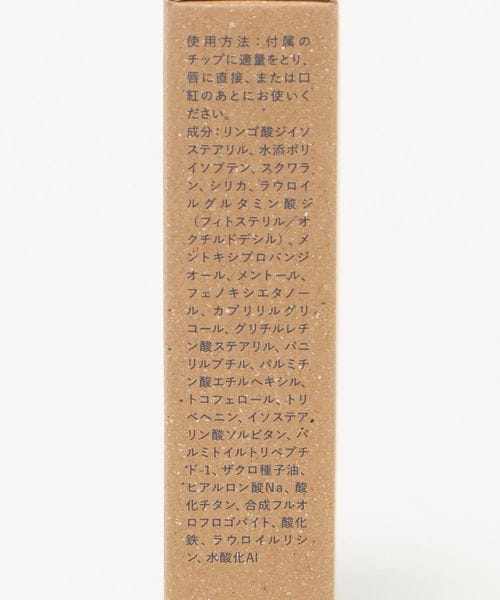 使用方法：付属の
チップに適量をとり、
唇に直接、または口
紅のあとにお使いく
ださい。
成分：リンゴ酸ジイソ
ステアリル、水添ポリ
イソブテン、スクワラ
ン、シリカ、ラウロイ
ルグルタミン酸ジ
（フィトステリル／オ
クチルドデシル）、メ
ントキシプロパンジ
オール、メントール、
フェノキシエタノー
ル、カプリリルグリ
コール、グリチルレチ
ン酸ステアリル、バニ
リルブチル、パルミチ
ン酸エチルヘキシル、
トコフェロール、トリ
ベヘニン、イソステア
リン酸ソルビタン、パ
ルミトイルトリペプチ
ド-1、ザクロ種子油、
ヒアルロン酸Na、酸
化チタン、合成フルオ
ロフロゴパイト、酸化
鉄、ラウロイルリシ
ン、水酸化Al